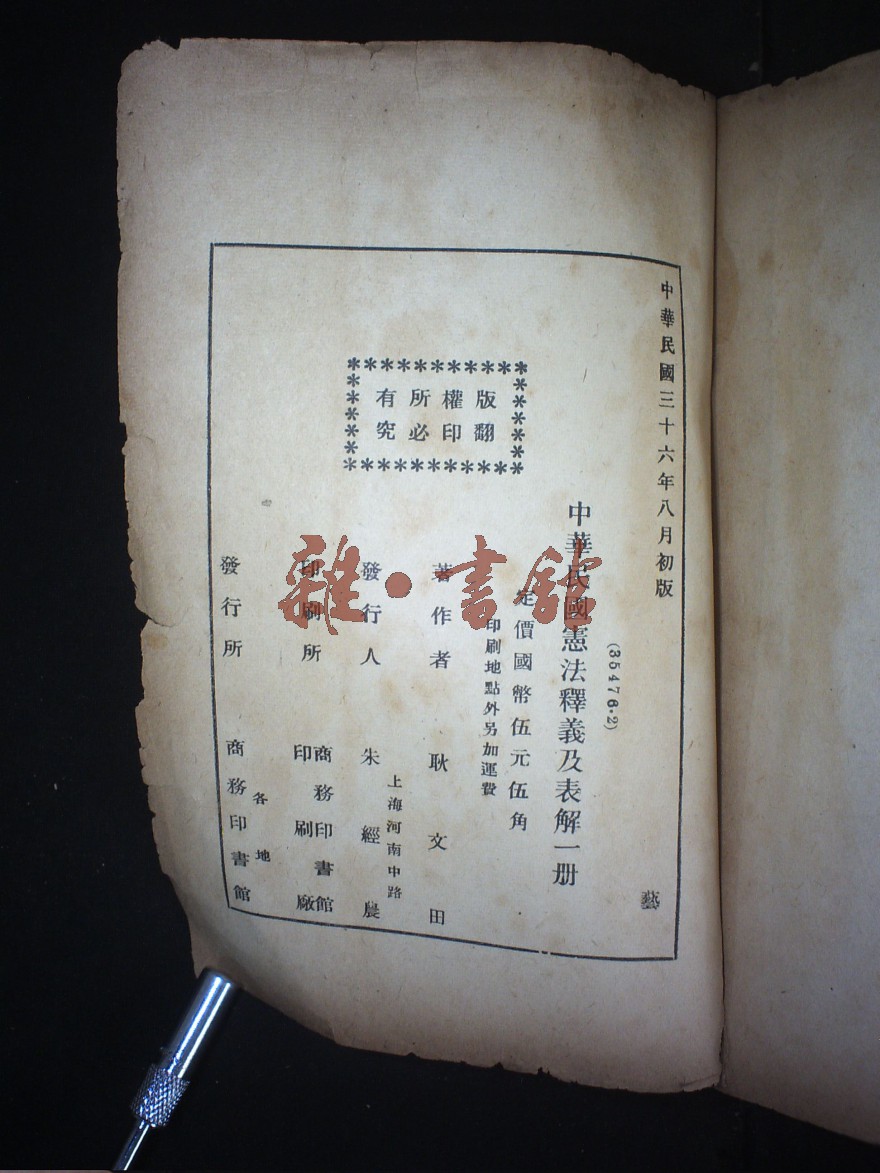 中華民國三十六年八月初版
(35476·2)
中華民國憲法釋義及表解一册
定價國幣伍元伍角
印刷地點外另加運費
版權所有
翻印必究
著作者 耿文田
上海河南中路
發行人 朱經農
印刷所 商務印書館
印刷廠
各地
發行所 商務印書館
藝
雜·書館